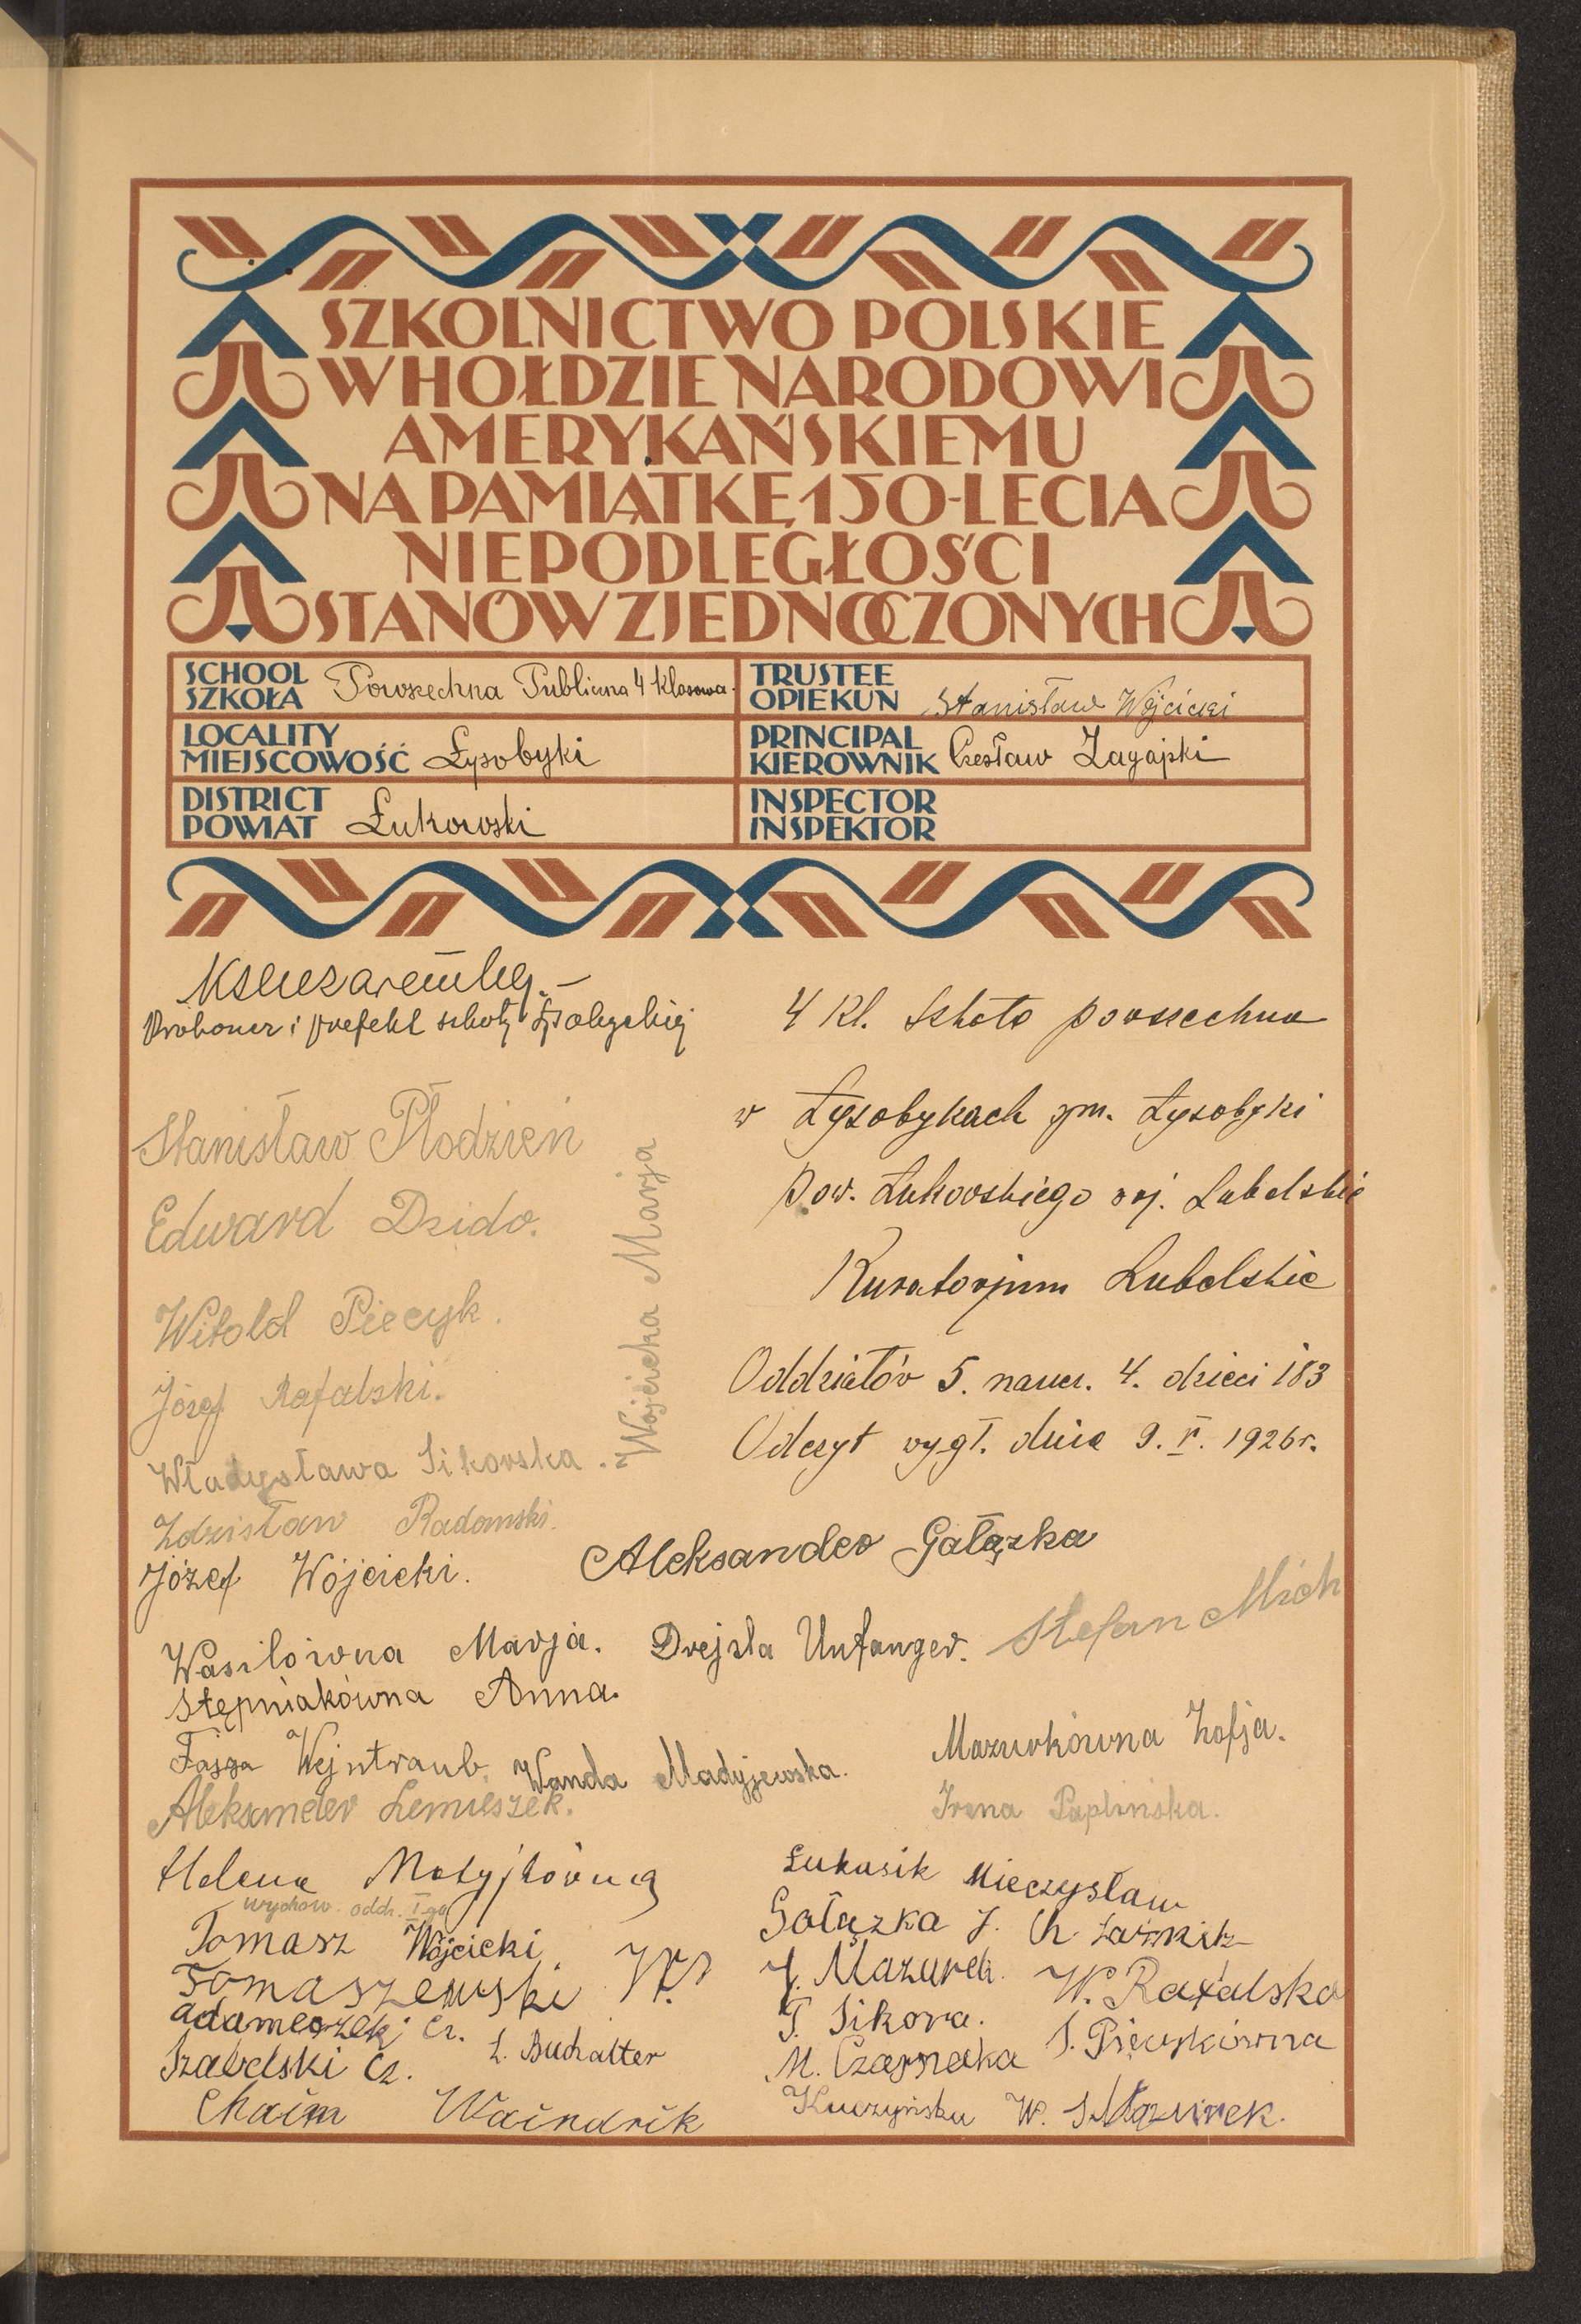 SZKOLNICTWO POLSKIE
W HOŁDZIE NARODOWI
AMERYKAŃSKIEMU
NA PAMIĄTKĘ 150-LECIA
NIEPODLEGŁOŚCI
STANÓW ZJEDNOCZONYCH
SCHOOL
SZKOŁA Powszechna Publiczna 4 klasowa
TRUSTEE
OPIEKUN Stanisław Wójcicki
LOCALITY
MIEJSCOWOŚĆ Łysobyki
PRINCIPAL
KIEROWNIK Czesław Zagajski
DISTRICT
POWIAT Łukowski
INSPECTOR
INSPEKTOR
Proboszcz i prefekt szkoły
4 kl. Szkoła powszechna
w Łysobykach gm. Łysobyki
pow. Łukowskiego woj. Lubelskie
Kuratorjum Lubelskie
Oddziałów 5. naucz. 4. dzieci 183
Odczyt wygł. dnia 9. V. 1926 r.
Stanisław Płodzień
Edward Dzido.
Witold Piecyk.
Józef Rafalski.
Władysława Sikorska.
Wójcicka Marja
Zdzisław Radomski.
Józef Wójcicki.
Aleksander Gałązka
Wasilówna Marja. Drejzla Unfanger. Stefan Mich
Stępniakówna Anna.
Fajga Wejntraub. Wanda Madyjewska.
Mazurkówna Zofja.
Aleksander Lemieszek.
Irena Paplińska.
Helena Matyjkówna
wychow. oddz. I go
Tomasz Wójcicki
Tomaszewski
Adameczek Cz.
L. Buchalter
Szabelski Cz.
Chaim Waindrik
Łukasik Mieczysław
Gałązka J. Ch.
J. Mazurek. W. Rafalska
T. Sikora.
M. Czarnecka S. Piecykówna
Kuczyńska W. S. Mazurek.